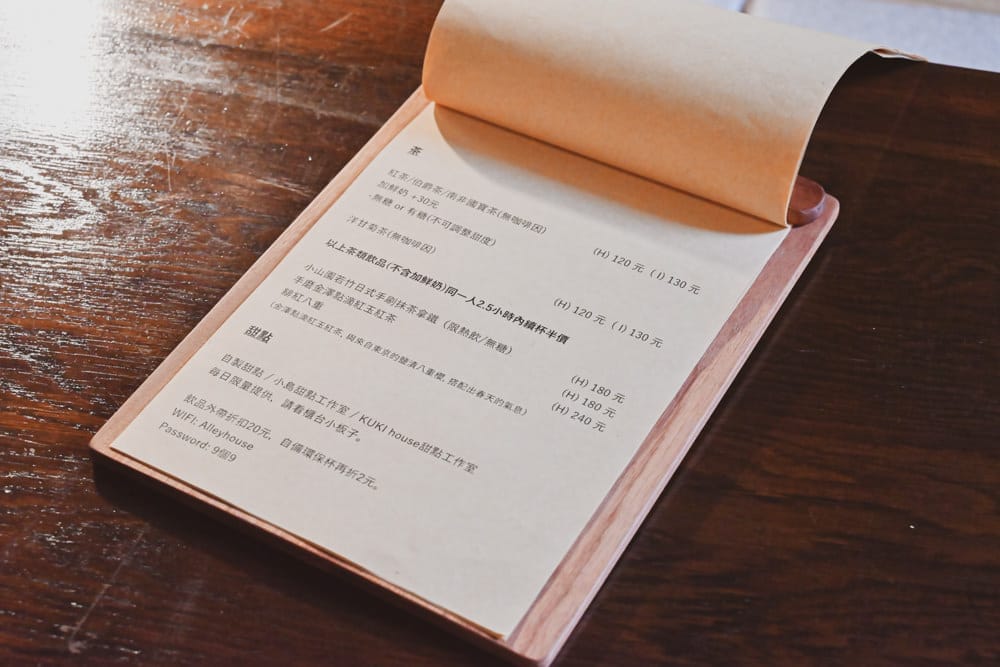 茶
紅茶/伯爵茶/南非國寶茶(無咖啡因)
(H) 120 元 ( I ) 130 元
加鮮奶 +30元
無糖 or 有糖(不可調整甜度)
洋甘菊茶(無咖啡因)
(H) 120 元 ( I ) 130 元
以上茶類飲品(不含加鮮奶)同一人2.5小時內續杯半價
小山園若竹日式手刷抹茶拿鐵（限熱飲/無糖）
(H) 180 元
手磨金澤點滴紅玉紅茶
(H) 180 元
緋紅八重
(H) 240 元
(金澤點滴紅玉紅茶, 與來自東京的鹽漬八重櫻, 搭配出春天的氣息)
甜點
自製甜點 / 小島甜點工作室 / KUKI house甜點工作室
每日限量提供，請看櫃台小板子。
飲品外帶折扣20元，自備環保杯再折2元。
WIFI: Alleyhouse
Password: 9個9